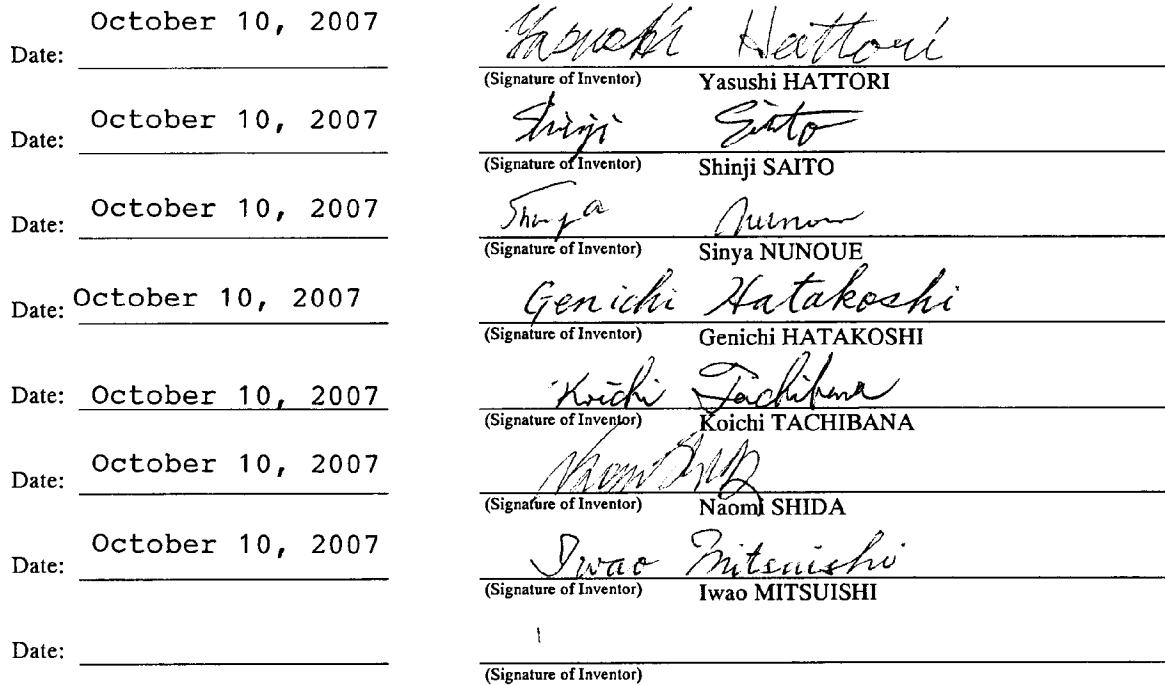 October 10, 2007
Date: Yasushi Hattori
(Signature of Inventor) Yasushi HATTORI
October 10, 2007
Date: Shinji Saito
(Signature of Inventor) Shinji SAITO
October 10, 2007
Date: Shinya
(Signature of Inventor) Sinya NUNOUE
Date: October 10, 2007 Genichi Hatakoshi
(Signature of Inventor) Genichi HATAKOSHI
Date: October 10, 2007 Koichi Tachibana
(Signature of Inventor) Koichi TACHIBANA
October 10, 2007
Date:
(Signature of Inventor) Naomi SHIDA
October 10, 2007
Date: Iwao Mitsuishi
(Signature of Inventor) Iwao MITSUISHI
Date:
(Signature of Inventor)